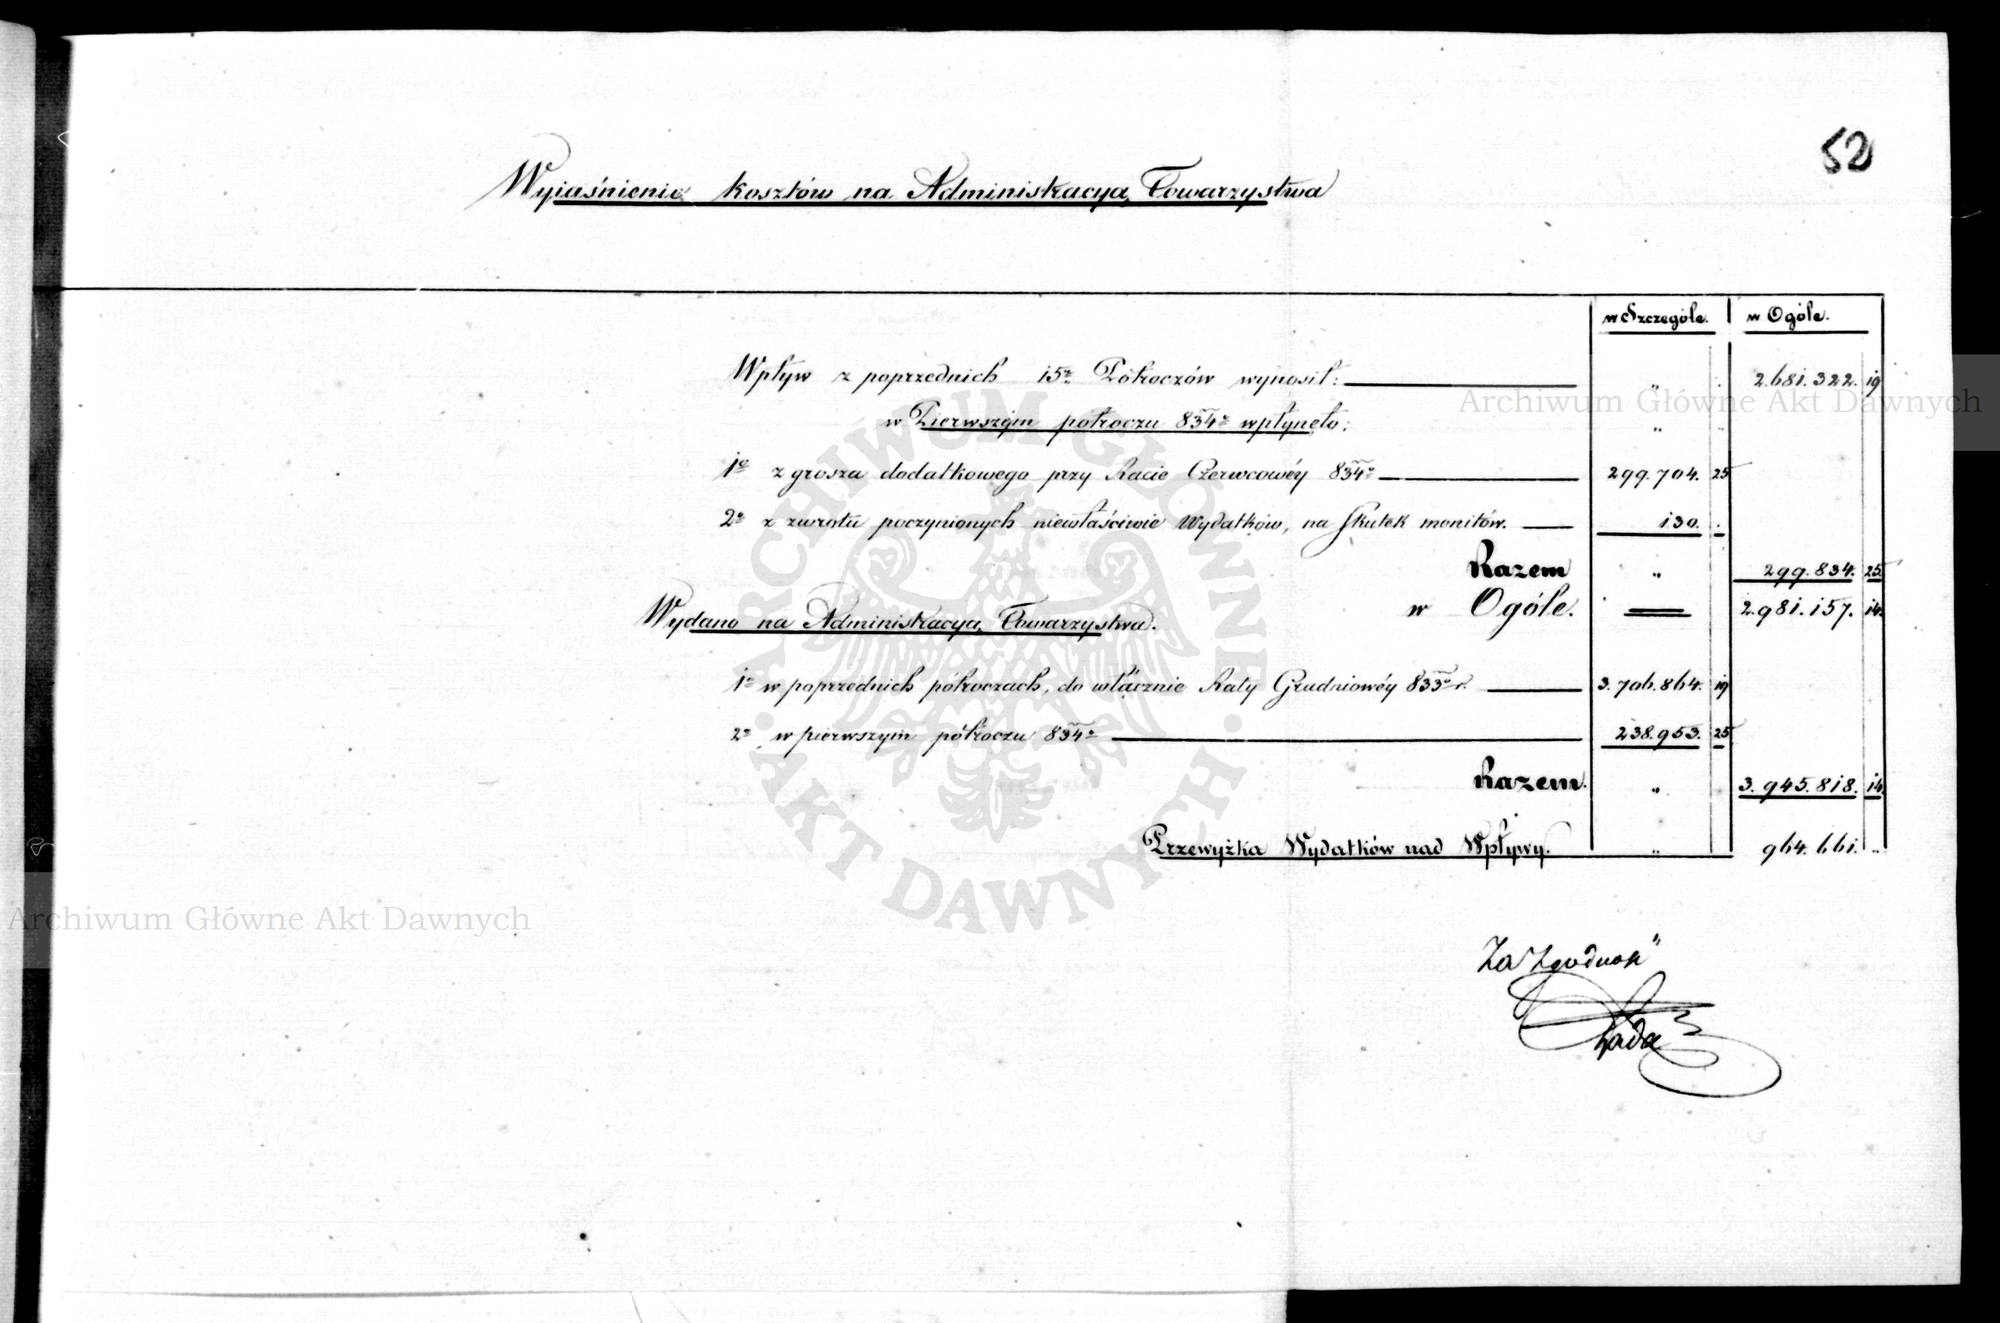 52
Wyjaśnienie kosztów na Administracyą Towarzystwa
w Szczególe. w Ogóle.
Wpływ z poprzednich 15tu Półroczów wynosił: „ . 2.681.322. 19
w Pierwszém półroczu 834o wpłynęło: „
1o z grosza dodatkowego przy Racie Czerwcowéy 834o 299.704. 25
2o z zwrotu poczynionych niewłaściwie Wydatków, na skutek monitów. 130. .
Razem „ 299.834. 25.
w Ogóle. 2.981.157. 14.
Wydano na Administracyą Towarzystwa.
1o w poprzednich półroczach, do włącznie Raty Grudniowéy 833o r. 3.706.864. 19
2o w pierwszym półroczu 834o 238.953. 25
Razem. „ 3.945.818. 14.
Przewyżka Wydatków nad Wpływy. „ 964.661. „
Za Zgodność
Archiwum Główne Akt Dawnych
Archiwum Główne Akt Dawnych
ARCHIWUM GŁÓWNE · AKT DAWNYCH ·